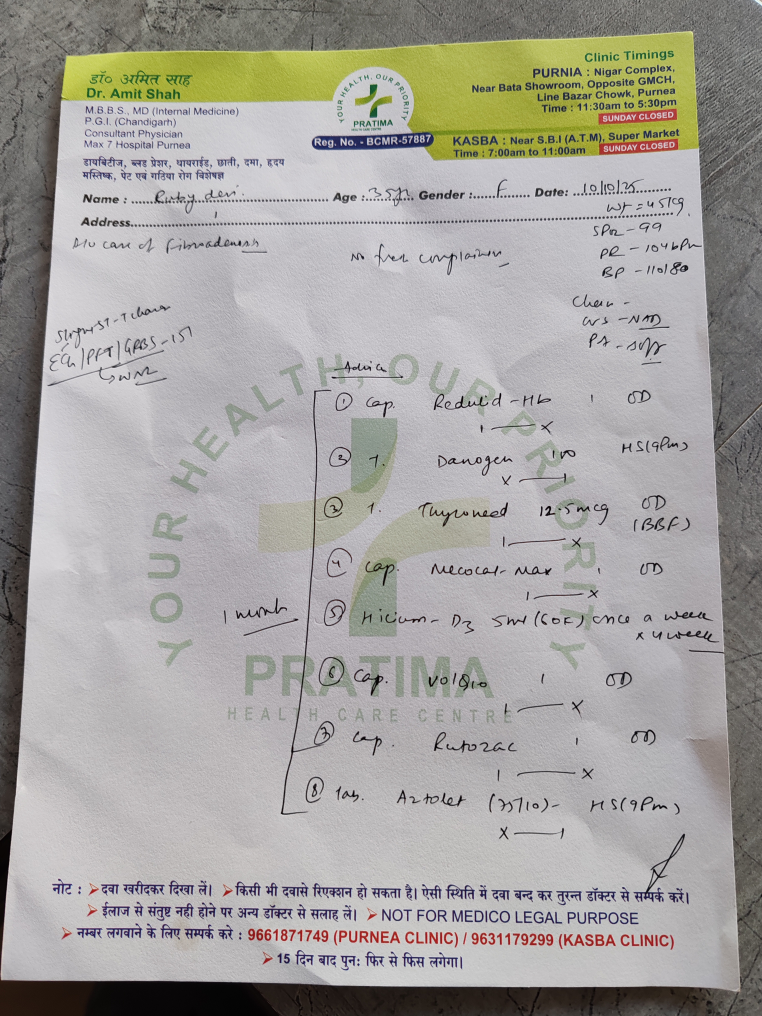 डॉ० अमित साह
Dr. Amit Shah
M.B.B.S., MD (Internal Medicine)
P.G.I. (Chandigarh)
Consultant Physician
Max 7 Hospital Purnea
डायबिटीज, ब्लड प्रेशर, थायराईड, छाती, दमा, हृदय
मस्तिष्क, पेट एवं गठिया रोग विशेषज्ञ
YOUR HEALTH, OUR PRIORITY
PRATIMA
HEALTH CARE CENTRE
Reg. No. - BCMR-57887
Clinic Timings
PURNIA : Nigar Complex,
Near Bata Showroom, Opposite GMCH,
Line Bazar Chowk, Purnea
Time : 11:30am to 5:30pm
SUNDAY CLOSED
KASBA : Near S.B.I (A.T.M), Super Market
Time : 7:00am to 11:00am SUNDAY CLOSED
Name : Ruby devi Age : 35 Gender : F Date: 10/10/25
Address
Wt = 45kg
SPO2 - 99
PR - 104 bPm
BP - 110/80
case of
No
Chest -
CVS - NAD
PA - Soft
ECG/PFT/GRBS - 151
WNL
Advice
① Cap. Redulid-Hb 1 OD
1 — X
② T. Danogen 100 HS (9Pm)
X — 1
③ T. Thyroneed 12.5mcg OD
(BBF)
1 — X
④ Cap. Mecocal-Max 1 OD
1 — X
1 month
⑤ D3 5ml (60K) once a week
x 4 week
⑥ Cap. VolQ10 1 OD
1 — X
⑦ Cap. Rutozac 1 OD
1 — X
⑧ Tab. Aztolet (75/10) - HS (9Pm)
X — 1
YOUR HEALTH, OUR PRIORITY
PRATIMA
HEALTH CARE CENTRE
नोट : ➤ दवा खरीदकर दिखा लें। ➤ किसी भी दवासे रिएक्शन हो सकता है। ऐसी स्थिति में दवा बन्द कर तुरन्त डॉक्टर से सम्पर्क करें।
➤ ईलाज से संतुष्ट नही होने पर अन्य डॉक्टर से सलाह लें। ➤ NOT FOR MEDICO LEGAL PURPOSE
➤ नम्बर लगवाने के लिए सम्पर्क करे : 9661871749 (PURNEA CLINIC) / 9631179299 (KASBA CLINIC)
➤ 15 दिन बाद पुन: फिर से फिस लगेगा।